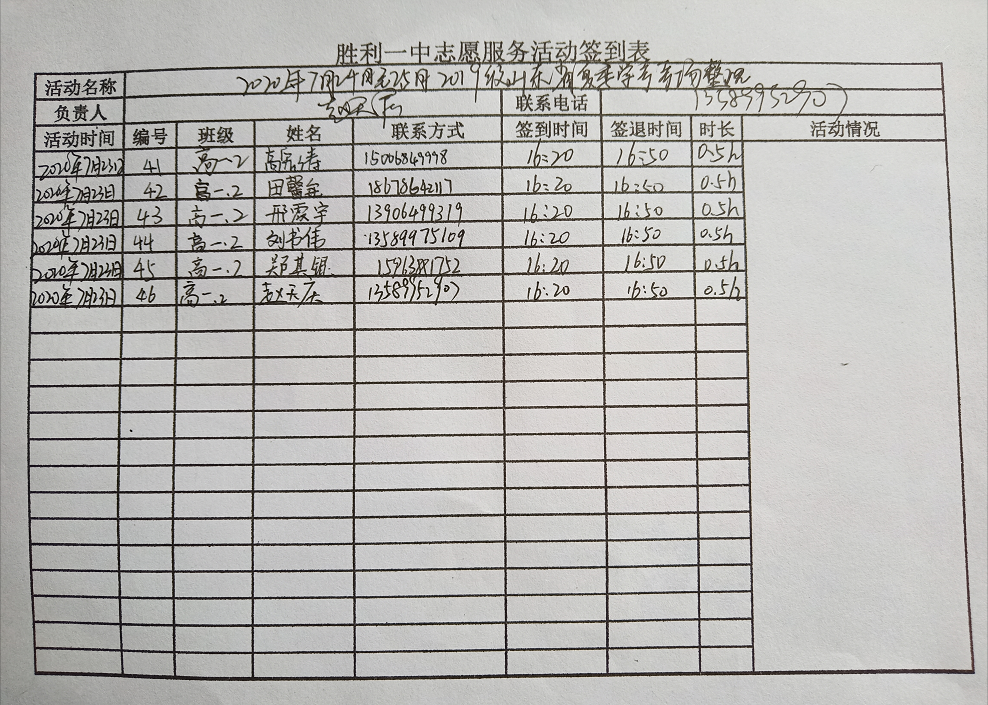 胜利一中志愿服务活动签到表
活动名称 2020年7月24日至25日2019级山东省夏季学考考场整理
负责人 赵天 联系电话 13589952907
活动时间 编号 班级 姓名 联系方式 签到时间 签退时间 时长 活动情况
2020年7月23日 41 高一.2 15006849998 16:20 16:50 0.5h
2020年7月23日 42 高一.2 田馨 18678642117 16:20 16:50 0.5h
2020年7月23日 43 高一.2 邢霞宇 13906499319 16:20 16:50 0.5h
2020年7月23日 44 高一.2 刘书伟 13589975109 16:20 16:50 0.5h
2020年7月23日 45 高一.2 郑其银 16:20 16:50 0.5h
2020年7月23日 46 高一.2 赵天 13589952907 16:20 16:50 0.5h